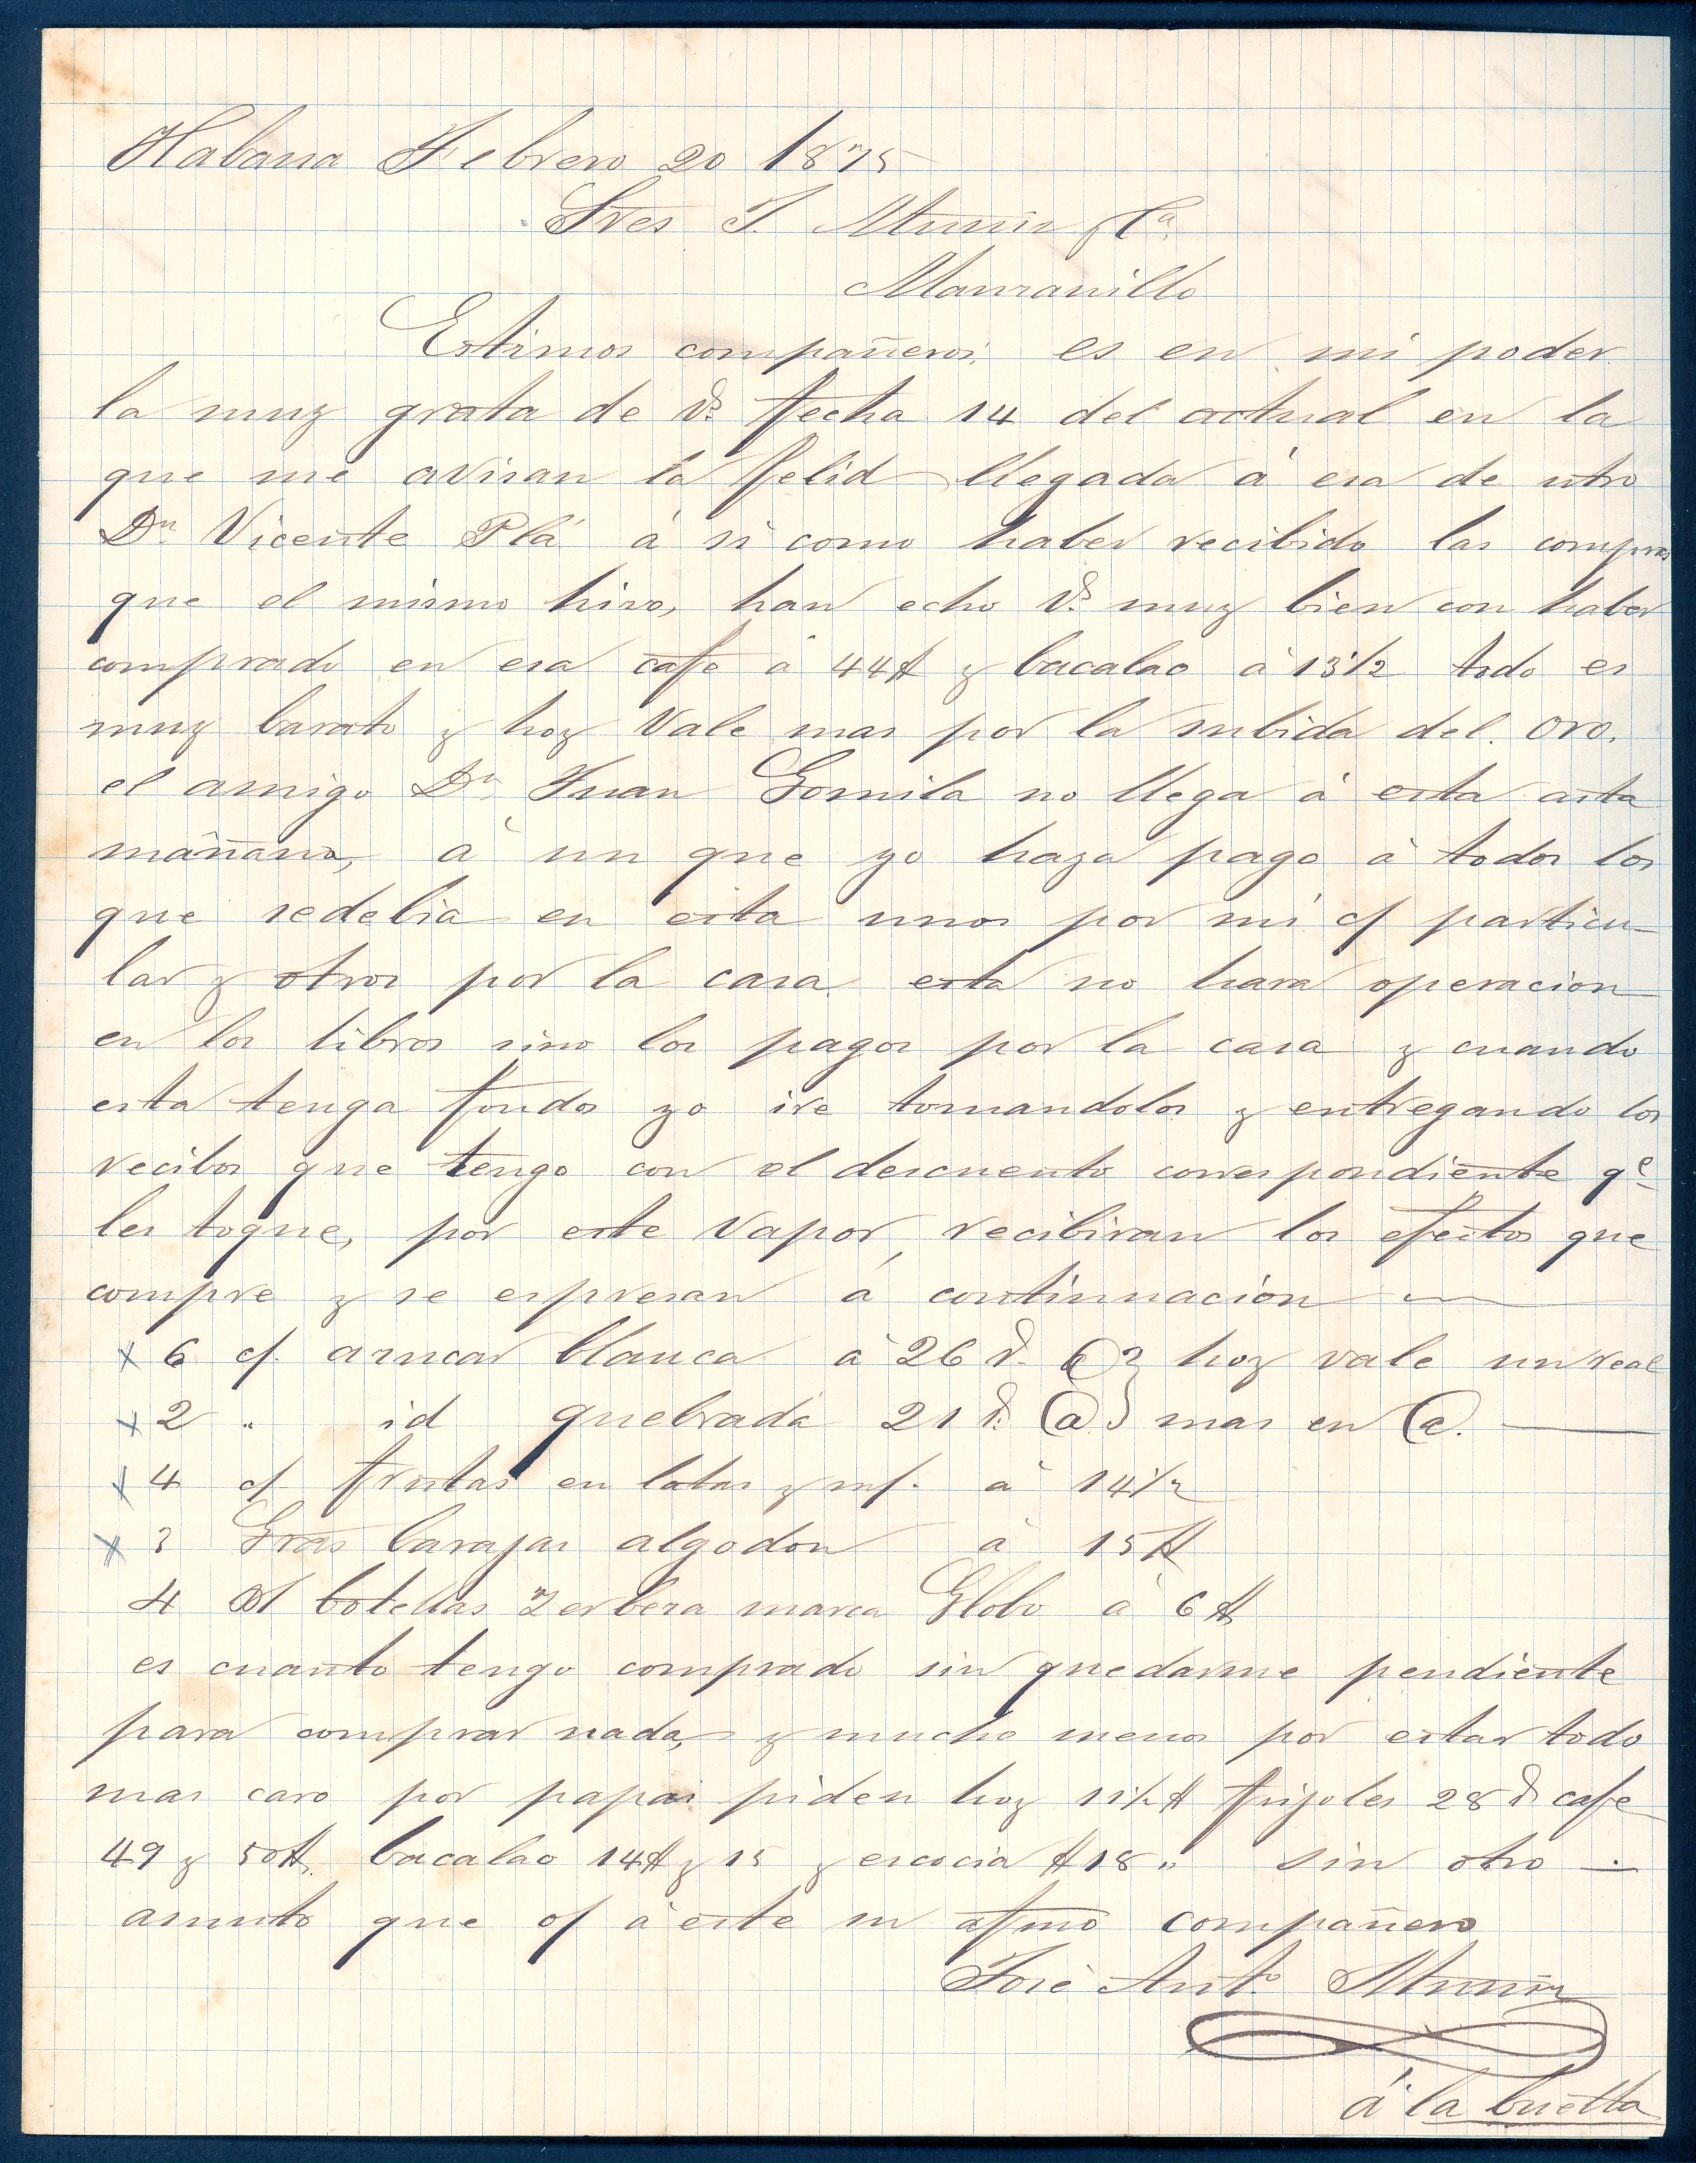 Habana Febrero 20 1875
Sres J. Muñiz y Cª.
Manzanillo
Estimos compañeros: es en mi poder
la muy grata de Vs. fecha 14 del actual en la
que me avisan la felid llegada á esa de ntro
Dn. Vicente Plá á si como haber recibido las compras
que el mismo hizo, han echo Vs. muy bien con haber
comprado en esa cafe a 44$ y bacalao á 13½ todo es
muy barato y hoy vale mas por la subida del oro.
el amigo Dn. Juan Gornila no llega á esta asta
mañana, á un que yo haza pago á todos los
que sedebia en esta unos por mi c/ particu-
lar y otros por la casa esta no hara operacion
en los libros sino los pagos por la casa y cuando
esta tenga fondos yo ire tomandolos y entregando los
recibos que tengo con el descuento correspondiente qe
les toque, por este vapor, recibiran los efectos que
compre y se espresan á continuación
x 6 c/. azucar blanca á 26 rs. @ hoy vale un real
x 2 " id quebrada 21 rs. @ mas en @.
x 4 c/ frutas en latas y m/. á 14½
x 3 Gras barajas algodon á 15$
4 botellas Zerbeza marca Globo á 6$
es cuanto tengo comprado sin quedarme pendiente
para comprar nada, y mucho menos por estar todo
mas caro por papas piden hoy 11½$ frijoles 28 rs cafe
49 y 50$. bacalao 14$ y 15 y escocia $18" sin otro
asunto que of á este su afmo compañero
José Anto. Muñiz
á la buelta